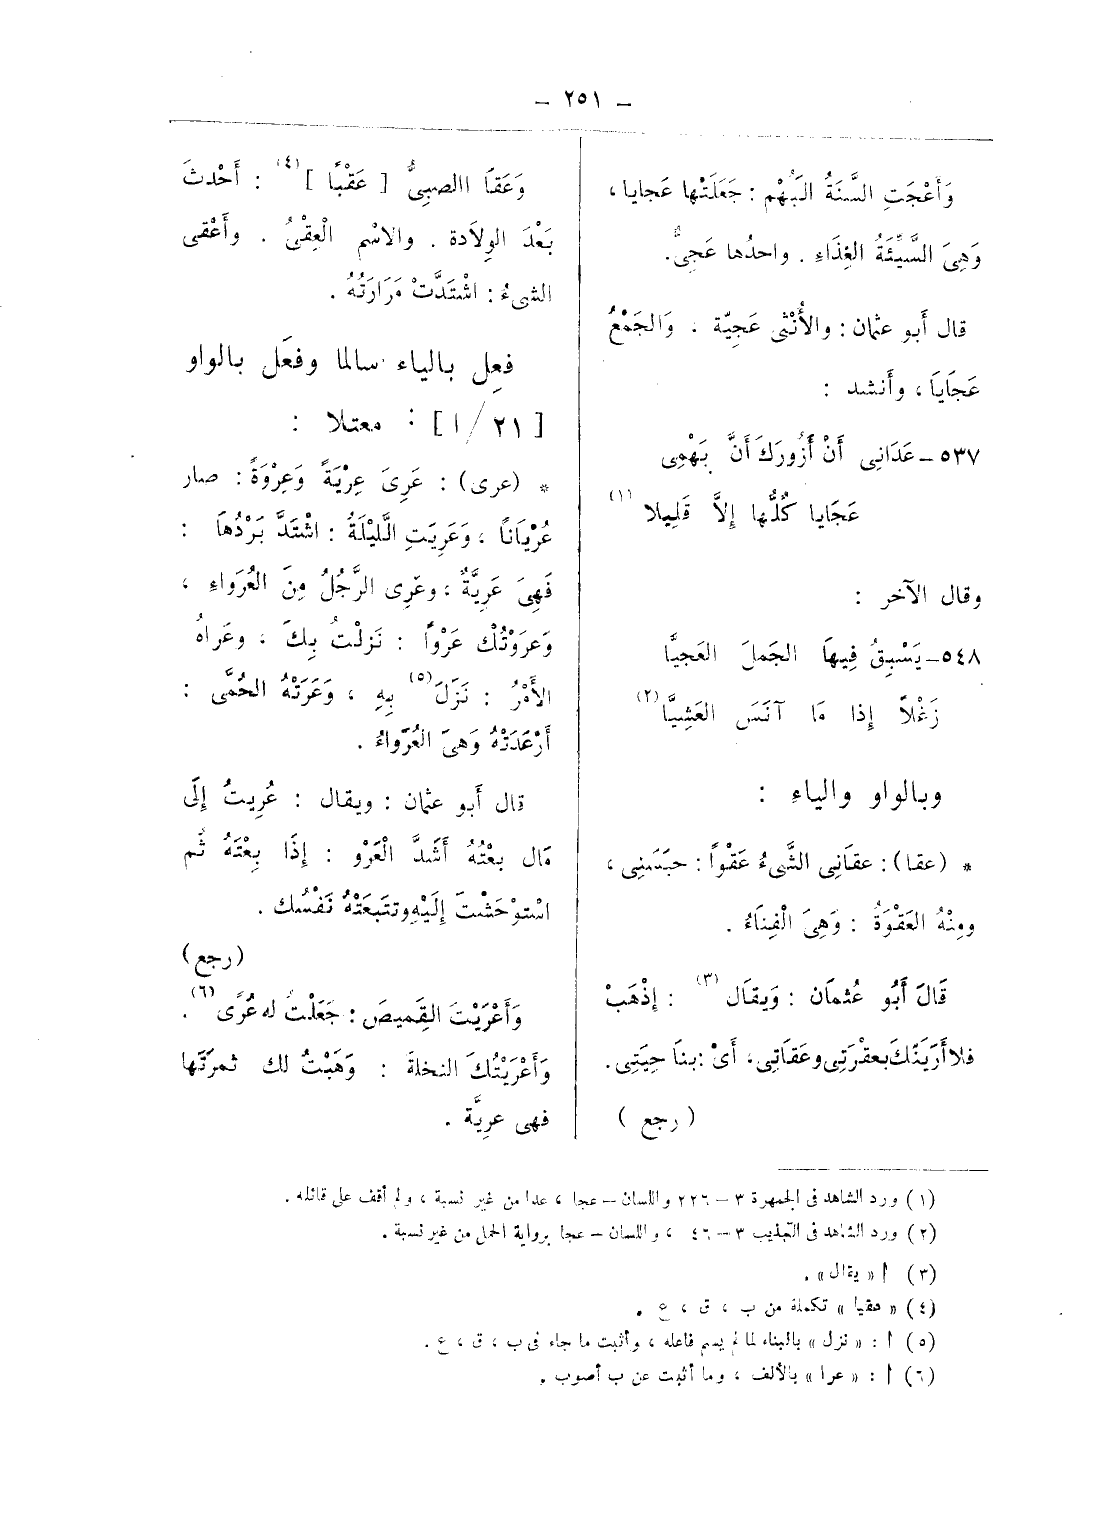 – ٢٥١ –
وَأَعْجَتِ السَّنَةُ البَهْم : جَعَلَتْها عَجايا ،
وَهِىَ السَّيِّئَةُ الغِذَاءِ . واحدُها عَجِىٌّ.
قال أَبو عثمان : والأُنْثى عَجِيّة ، وَالجَمْعُ
عَجَايَا ، وأَنشد :
٥٣٧ – عَدَانِى أَنْ أَزُورَكَ أَنَّ بَهْمِى
عَجَايا كُلُّها إِلاَّ قَلِيلا (١)
وقال الآخر :
٥٤٨ – يَسْبِقُ فِيهَا الجَملَ العَجيَّا
زَغْلاً إِذا مَا آنَسَ العَشِيَّا (٢)
وبالواو والياءِ :
* (عقا) : عقَانِى الشَّىءُ عَقْواً : حبَسَنِى ،
ومِنْهُ العَقْوَةُ : وَهِىَ الْفِنَاءُ .
قَالَ أَبُو عُثمَان : وَيقَال (٣) : إِذْهَبْ
فلا أَرَيَنَّكَ بعقْرَتِى وعَقَاتِى، أَىْ : بنَاحِيَتِى.
( رجع )
وَعَقَا االصبِىُّ [ عَقْبًا ] (٤) : أَحْدثَ
بَعْدَ الوِلَادة . والاسْم الْعِقْىُ . وأَعْقى
الشىءُ : اشْتَدَّتْ مَرَارَتُهُ .
فعِل بالياء سالما وفعَل بالواو
معتلا : [٢١/ ا] :
* (عرى) : عَرِىَ عِرْيَةً وَعِرْوَةً : صار
عُرْيَاناً ، وَعَرِيَتِ الَّليْلَةُ : اشْتَدَّ بَرْدُهَا :
فَهِىَ عَرِيَّةٌ ، وعَرِى الرَّجُلُ مِنَ العُرَواءِ ،
وَعرَوْتُك عَرْواً : نَزلْتُ بِكَ ، وعَراهُ
الأَمْرُ : نَزَلَ (٥) بِهِ ، وَعَرَتْهُ الحُمَّى :
أَرْعَدَتْهُ وَهِىَ العُرَواءُ .
قال أَبو عثمان : ويقال : عُرِيتُ إِلَى
مَال بعْتُهُ أَشَدَّ الْعَرْو : إِذَا بِعْتَهُ ثُم
اسْتوْحَشْتَ إِلَيْهِ وتتَبعَتْهُ نَفْسُك .
(رجع)
وَأَعْرَيْتَ القَمِيصَ : جَعَلْتُ له عُرًى (٦) .
وَأَعْرَيْتُكَ النخلةَ : وَهَبْتُ لك ثمرَتَها
فهى عرِيَّة .
(١) ورد الشاهد فى الجمهرة ٣ – ٢٢٦ واللسان – عجا ، عدا من غير نسبة ، ولم أقف على قائله .
(٢) ورد الشاهد فى التهذيب ٣ – ٤٦ ، واللسان – عجا برواية الحمل من غير نسبة .
(٣) أ « يقال » .
(٤) « عقيا » تكملة من ب ، ق ، ع .
(٥) أ : « نزل » بالبناء لما لم يسم فاعله ، وأثبت ما جاء فى ب ، ق ، ع .
(٦) أ : « عرا » بالألف ، وما أثبت عن ب أصوب .